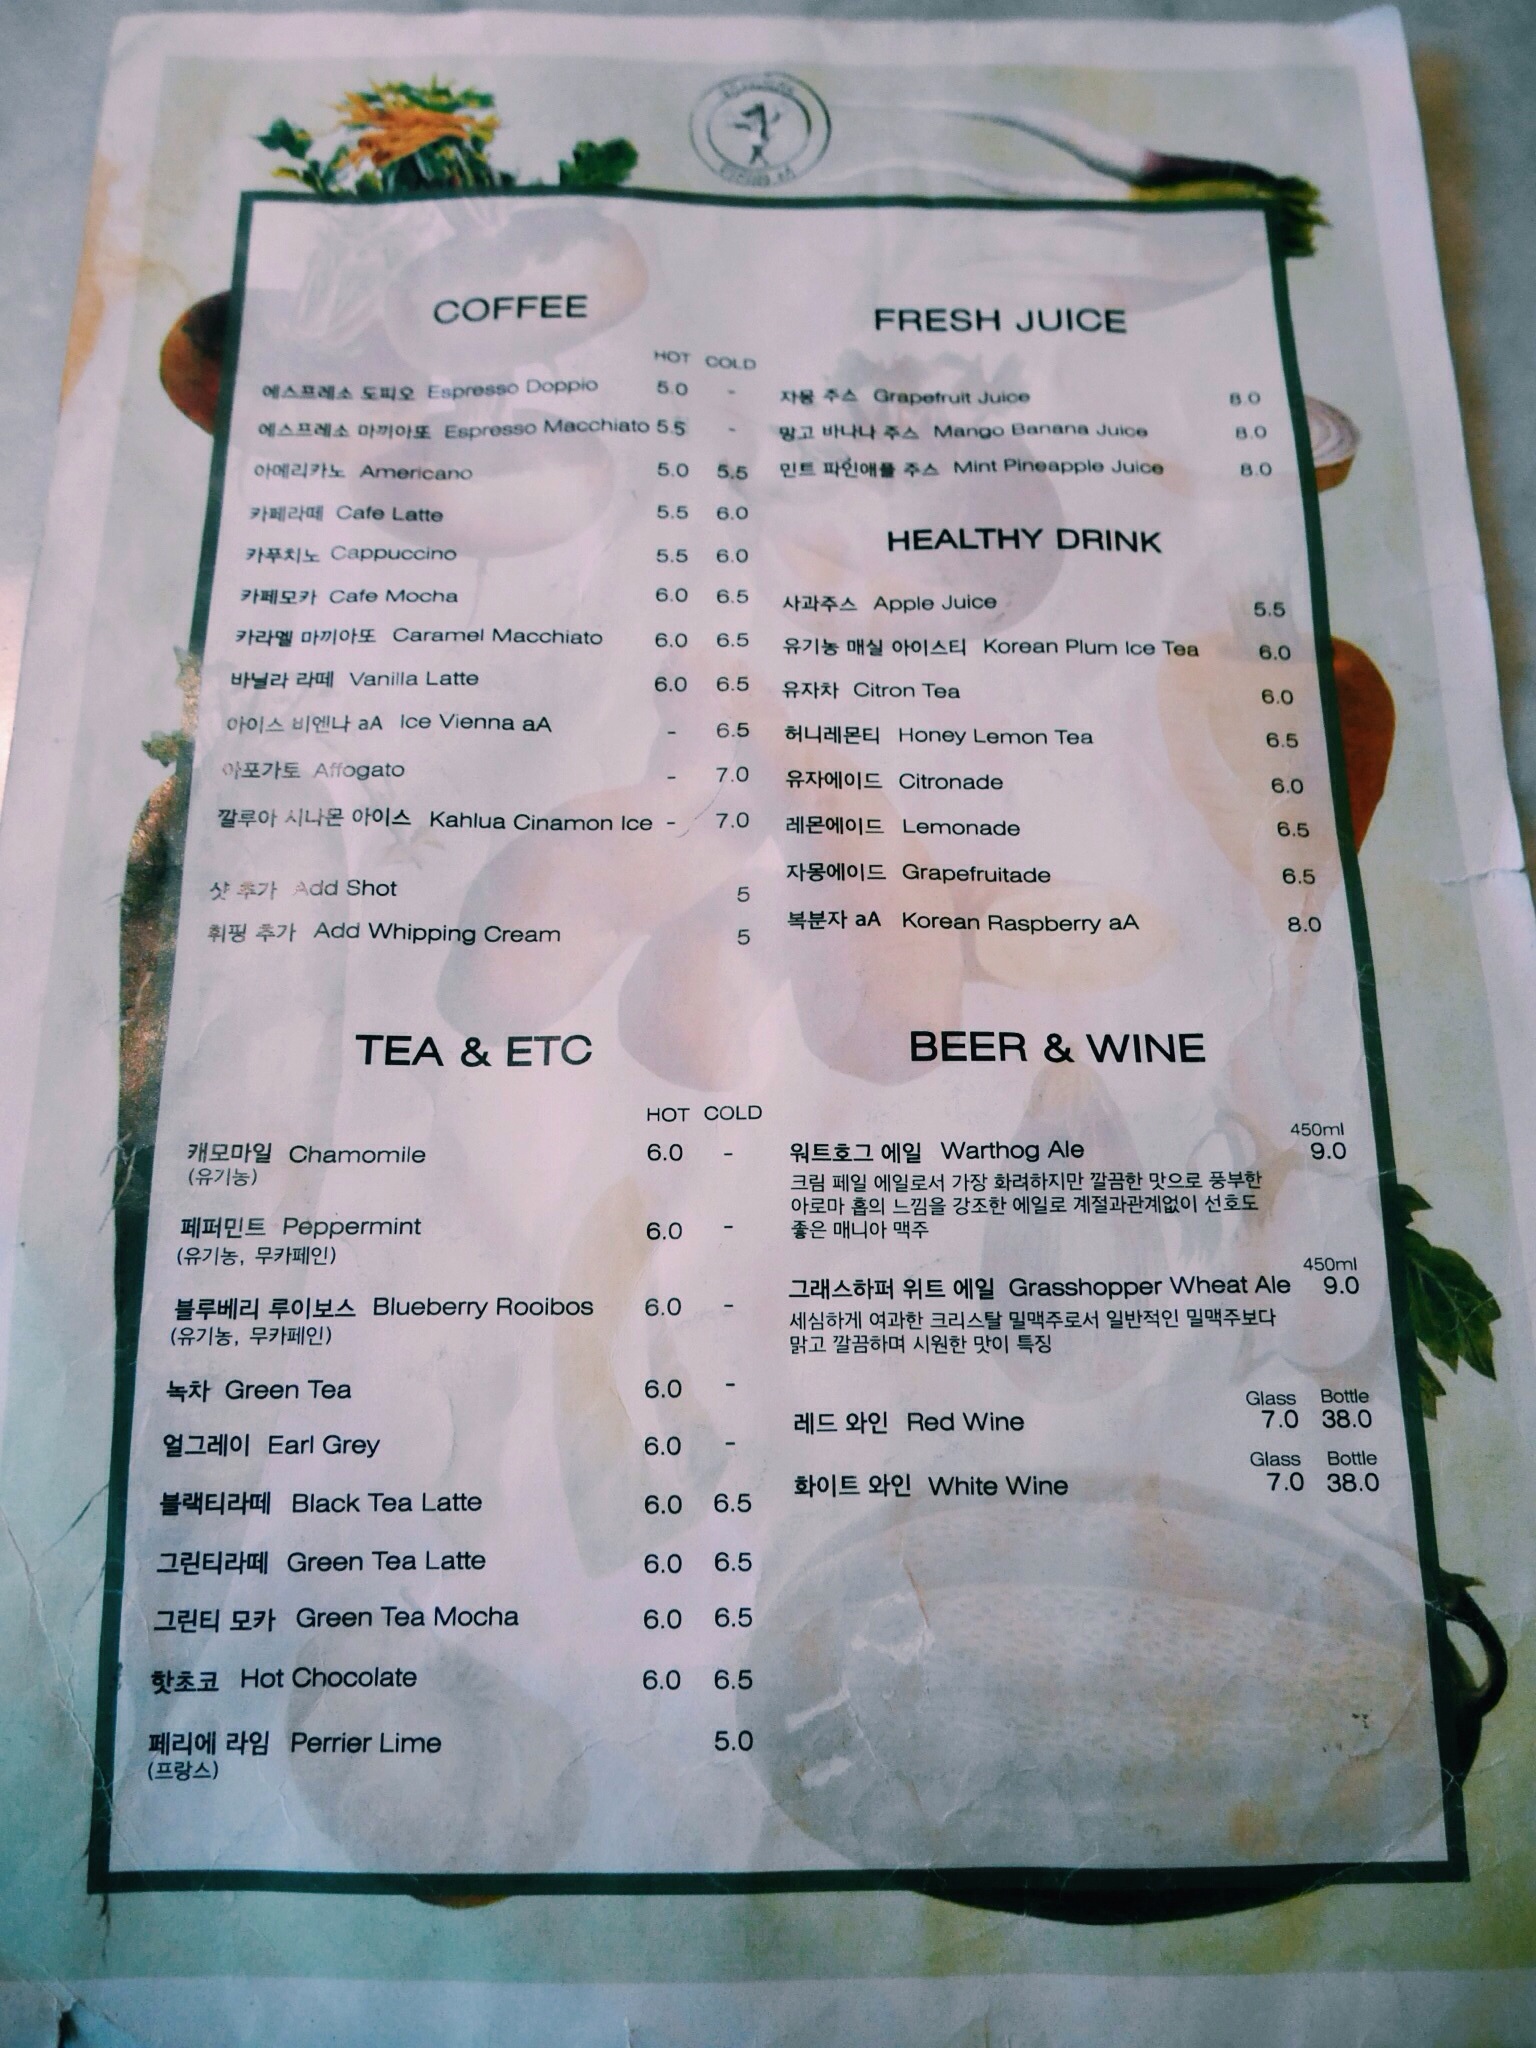 COFFEE
HOT COLD
에스프레소 도피오 Espresso Doppio 5.0 -
에스프레소 마끼아또 Espresso Macchiato 5.5 -
아메리카노 Americano 5.0 5.5
카페라떼 Cafe Latte 5.5 6.0
카푸치노 Cappuccino 5.5 6.0
카페모카 Cafe Mocha 6.0 6.5
카라멜 마끼아또 Caramel Macchiato 6.0 6.5
바닐라 라떼 Vanilla Latte 6.0 6.5
아이스 비엔나 aA Ice Vienna aA - 6.5
아포가토 Affogato - 7.0
깔루아 시나몬 아이스 Kahlua Cinamon Ice - 7.0
샷 추가 Add Shot 5
휘핑 추가 Add Whipping Cream 5
FRESH JUICE
자몽 주스 Grapefruit Juice 8.0
망고 바나나 주스 Mango Banana Juice 8.0
민트 파인애플 주스 Mint Pineapple Juice 8.0
HEALTHY DRINK
사과주스 Apple Juice 5.5
유기농 매실 아이스티 Korean Plum Ice Tea 6.0
유자차 Citron Tea 6.0
허니레몬티 Honey Lemon Tea 6.5
유자에이드 Citronade 6.0
레몬에이드 Lemonade 6.5
자몽에이드 Grapefruitade 6.5
복분자 aA Korean Raspberry aA 8.0
TEA & ETC
HOT COLD
캐모마일 Chamomile 6.0 -
(유기농)
페퍼민트 Peppermint 6.0 -
(유기농, 무카페인)
블루베리 루이보스 Blueberry Rooibos 6.0 -
(유기농, 무카페인)
녹차 Green Tea 6.0 -
얼그레이 Earl Grey 6.0 -
블랙티라떼 Black Tea Latte 6.0 6.5
그린티라떼 Green Tea Latte 6.0 6.5
그린티 모카 Green Tea Mocha 6.0 6.5
핫초코 Hot Chocolate 6.0 6.5
페리에 라임 Perrier Lime 5.0
(프랑스)
BEER & WINE
450ml
워트호그 에일 Warthog Ale 9.0
크림 페일 에일로서 가장 화려하지만 깔끔한 맛으로 풍부한
아로마 홉의 느낌을 강조한 에일로 계절과관계없이 선호도
좋은 매니아 맥주
450ml
그래스하퍼 위트 에일 Grasshopper Wheat Ale 9.0
세심하게 여과한 크리스탈 밀맥주로서 일반적인 밀맥주보다
맑고 깔끔하며 시원한 맛이 특징
Glass Bottle
레드 와인 Red Wine 7.0 38.0
Glass Bottle
화이트 와인 White Wine 7.0 38.0